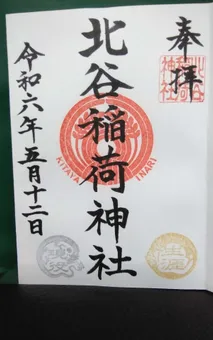 奉拝
北谷稲荷神社
KITAYA INARI
令和六年五月十二日